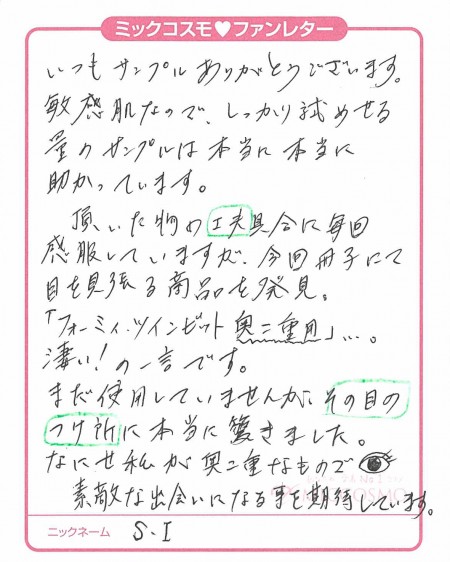 ミックコスモ♥ファンレター
いつもサンプルありがとうございます。
敏感肌なので、しっかり試めせる
量のサンプルは本当に本当に
助かっています。
頂いた物の工夫具合に毎回
感服していますが、今回冊子にて
目を見張る商品を発見。
「フォーミィ・ツインゼット奥二重用」…。
凄い!の一言です。
まだ使用していませんが、その目の
つけ所に本当に驚きました。
なにせ私が奥二重なもので
素敵な出会いになる事を期待しています。
ニックネーム S.I